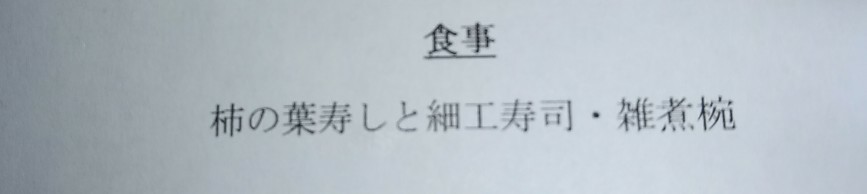 食事
柿の葉寿しと細工寿司・雑煮椀